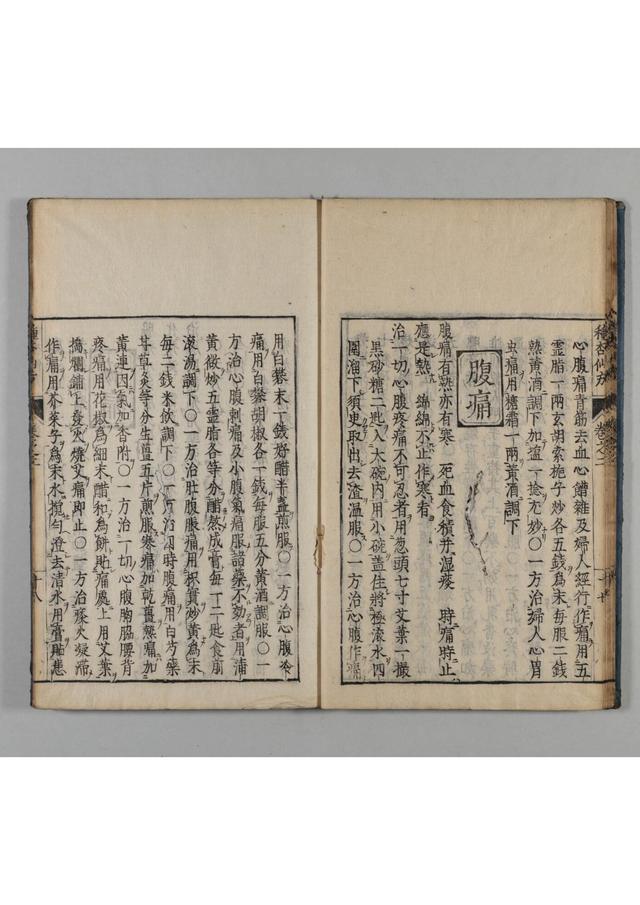 心腹痛青筋去血心饍雜及婦人經行作痛用五
靈脂一兩玄胡索梔子炒各五錢為末每服二錢
熱黃酒調下加塩一捻尤妙〇一方治婦人心胃
虫痛用糖霜一兩黃酒調下
腹痛
腹痛有熱亦有寒 死血食積并湿痰 時痛時止
應是熱 綿綿不止作寒看
治一切心腹疼痛不可忍者用葱頭七寸艾葉一撮
黒砂糖二匙入大碗内用小碗盖住將極滚水四
圍溜下須臾取出去渣温服〇一方治心腹作痛
用白礬末一錢好醋半盞煎服〇一方治心腹冷
痛用白礬胡椒各一錢每服五分黃酒調服〇一
方治心腹刺痛及小腹氣痛服諸藥不効者用蒲
黃微炒五靈脂各等分醋熬成膏每一二匙食前
滚湯調下〇一方治肚腹脹痛用枳實炒黃為末
每二錢米飲調下〇一方治四時腹痛用白芍藥
甘草炙等分生薑五片煎服寒痛加乾薑熱痛加
黃連因氣加香附〇一方治一切心腹胸脇腰背
疼痛用花椒為細末醋和為餅貼痛處上用艾葉
搗爛鋪上發火燒艾痛即止〇一方治痰火凝滯
作痛用芥菜子為末水攪勻澄去清水用膏貼患
種杏仙方
卷之二
十八